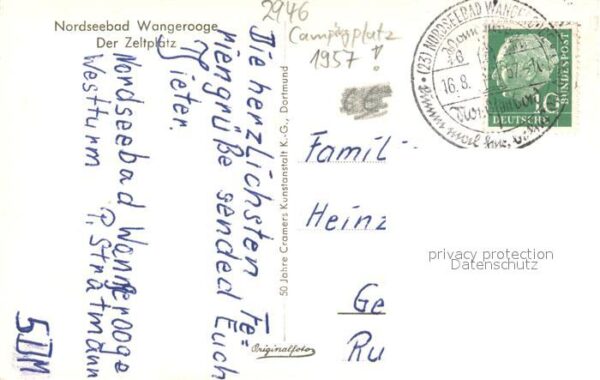 Nordseebad Wangerooge
Der Zeltplatz
2946
Campingplatz
1957!
Die herzlichsten Fe=
riengrüße sended Euch
Dieter.
Nordseebad Wangerooge
Westturm P. Stratmann
5DM
50 Jahre Cramers Kunstanstalt K.-G., Dortmund
Originalfoto
Famil
Heinz
Ge
Ru
(23) NORDSEEBAD WANGEROOGE
16.8.
57
DEUTSCHE
BUNDESPOST
10
privacy protection
Datenschutz